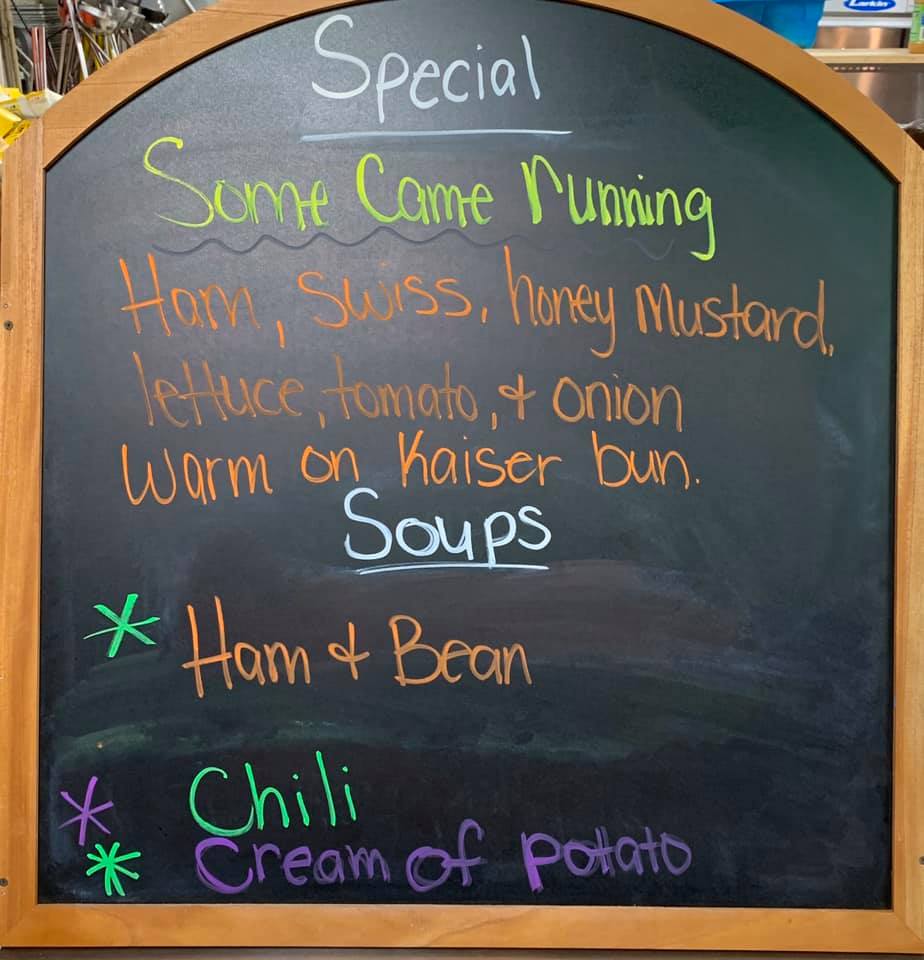 Larkin
Special
Some Came running
Ham, Swiss, honey Mustard,
lettuce, tomato, & onion
Warm on Kaiser bun.
Soups
* Ham & Bean
* Chili
* Cream of potato